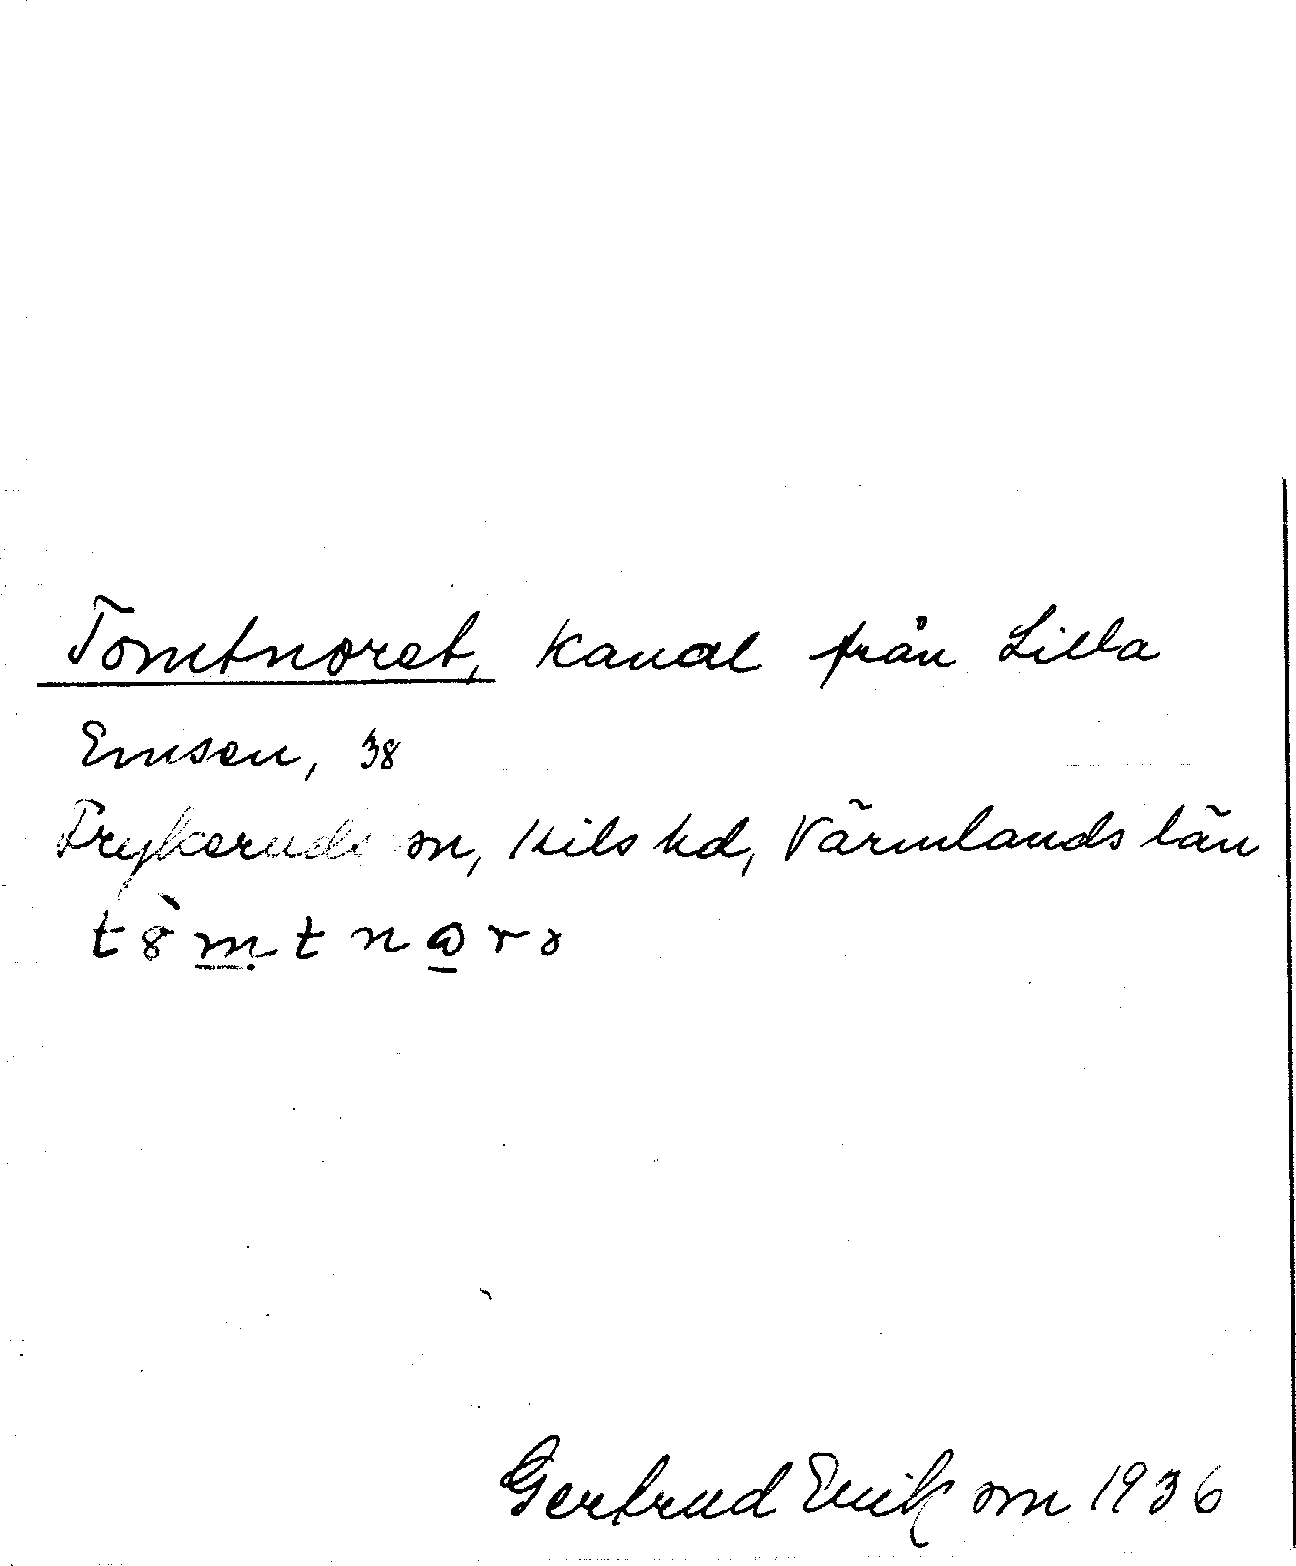 Tomtnoret, kanal från Lilla
Emsen, 38
Frykeruds sn, Kils hd, Värmlands län
tòmtnoro
Gertrud Erikson 1936